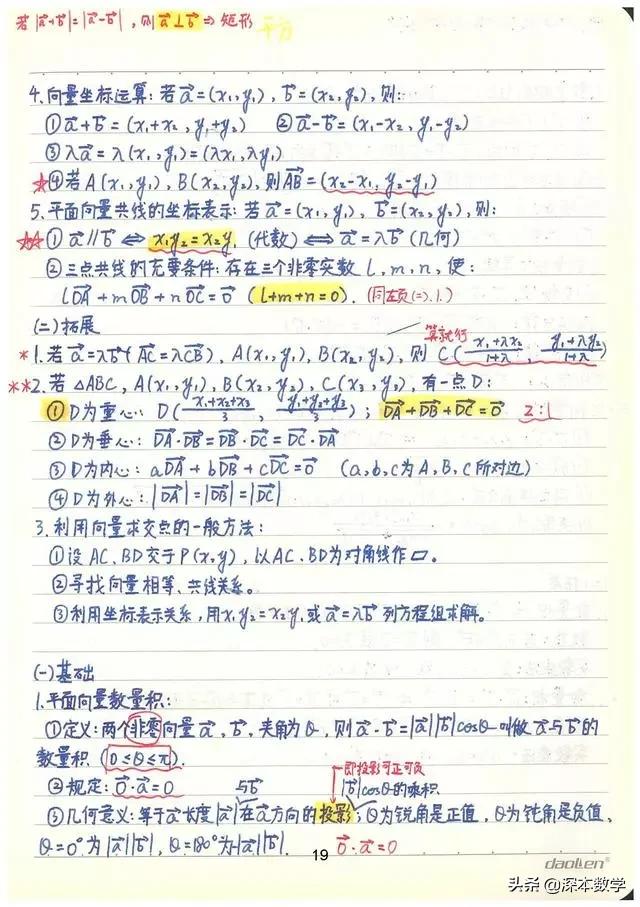 若|a⃗+b⃗|=|a⃗-b⃗|,则a⃗⊥b⃗⇒矩形 平方
4.向量坐标运算:若a⃗=(x₁,y₁),b⃗=(x₂,y₂),则:
①a⃗+b⃗=(x₁+x₂,y₁+y₂) ②a⃗-b⃗=(x₁-x₂,y₁-y₂)
③λa⃗=λ(x₁,y₁)=(λx₁,λy₁)
☆④若A(x₁,y₁),B(x₂,y₂),则AB⃗=(x₂-x₁,y₂-y₁)
5.平面向量共线的坐标表示:若a⃗=(x₁,y₁),b⃗=(x₂,y₂),则:
☆☆①a⃗∥b⃗⇔x₁y₂=x₂y₁(代数)⇔a⃗=λb⃗(几何)
②三点共线的充要条件:存在三个非零实数l,m,n,使:
lOA⃗+mOB⃗+nOC⃗=0⃗(l+m+n=0).(同左页(一).1.)
(二)拓展
算就行
*1.若a⃗=λb⃗(AC⃗=λCB⃗),A(x₁,y₁),B(x₂,y₂),则C(x₁+λx₂/1+λ,y₁+λy₂/1+λ)
**2.若△ABC,A(x₁,y₁),B(x₂,y₂),C(x₃,y₃),有一点D:
①D为重心:D(x₁+x₂+x₃/3,y₁+y₂+y₃/3);DA⃗+DB⃗+DC⃗=0⃗ 2:1
②D为垂心:DA⃗·DB⃗=DB⃗·DC⃗=DC⃗·DA⃗
③D为内心:aDA⃗+bDB⃗+cDC⃗=0⃗ (a,b,c为A,B,C所对边)
④D为外心:|DA⃗|=|DB⃗|=|DC⃗|
3.利用向量求交点的一般方法:
①设AC、BD交于P(x,y),以AC、BD为对角线作▱。
②寻找向量相等、共线关系。
③利用坐标表示关系,用x₁y₂=x₂y₁或a⃗=λb⃗列方程组求解。
(一)基础
1.平面向量数量积:
①定义:两个非零向量a⃗,b⃗,夹角为θ,则a⃗·b⃗=|a⃗||b⃗|cosθ叫做a⃗与b⃗的
数量积(0≤θ≤π)
即投影可正可负
②规定:0⃗·a⃗=0 与b⃗ |b⃗|cosθ的乘积.
③几何意义:等于a⃗长度|a⃗|在a⃗方向的投影;θ为锐角是正值,θ为钝角是负值、
θ=0°为|a⃗||b⃗|,θ=180°为-|a⃗||b⃗|. 0⃗·a⃗=0
19
daolen
头条@深本数学